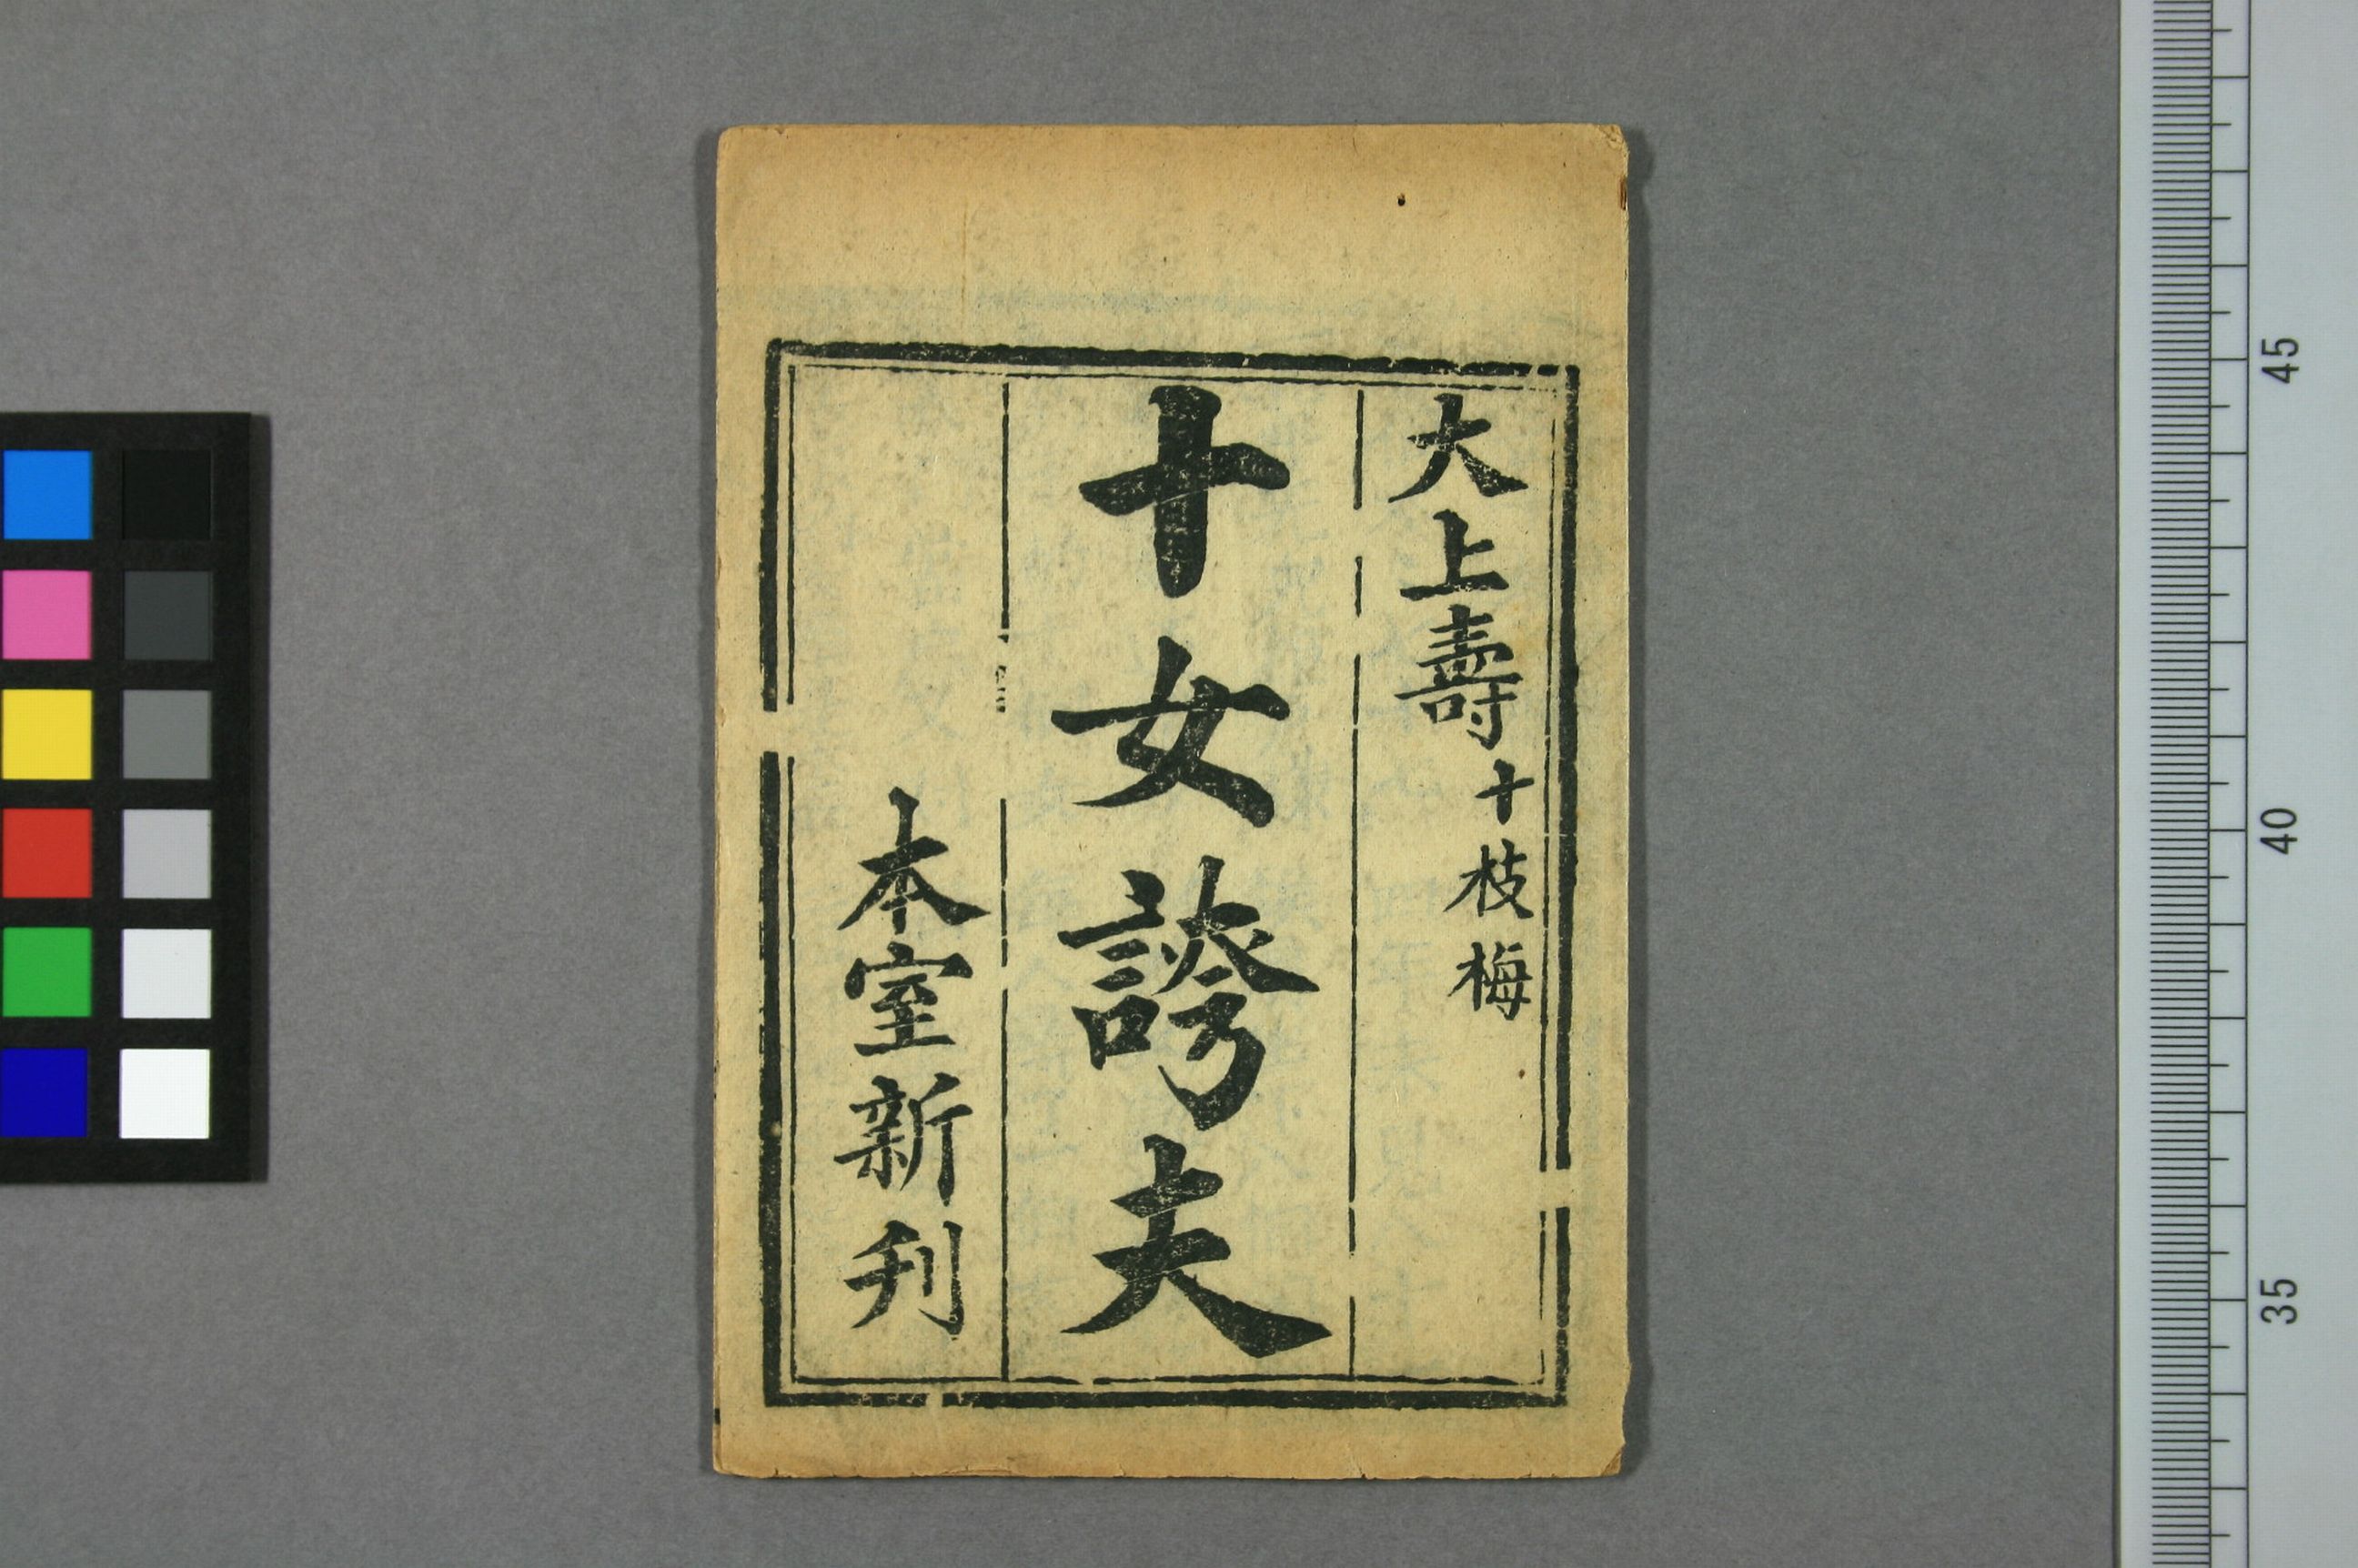 大上壽十枝梅
十女誇夫
本室新刋
45
40
35